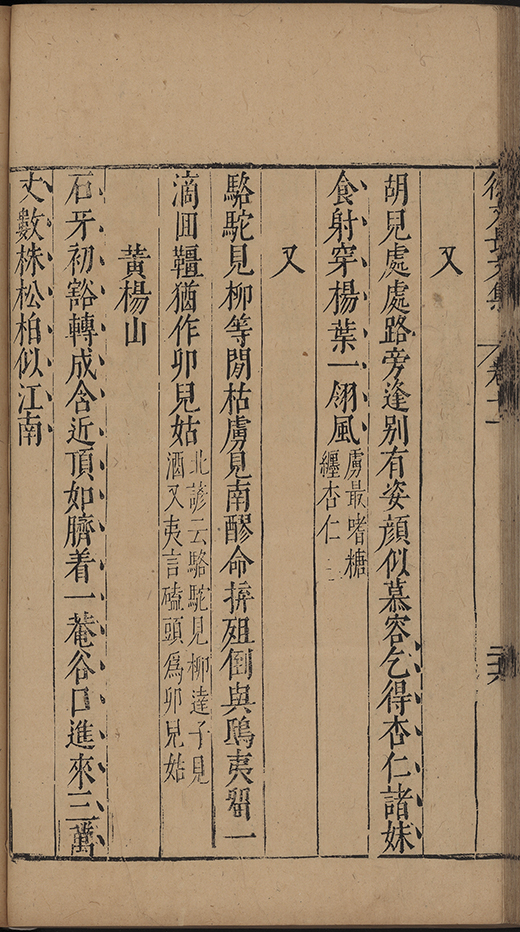 徐文長文集 卷十一
又
胡兒處處路旁逢別有姿顏似慕容乞得杏仁諸妹
食射穿楊葉一翎風虜最嗜糖
纏杏仁
又
駱駝見柳等閒枯虜見南醪命拚殂倒與鴟夷留一
滴回韁猶作卯兒姑北諺云駱駝見柳達子見
酒又夷言磕頭為卯兒姑
黃楊山
石牙初豁轉成含近頂如臍着一菴谷口進來三萬
丈數株松柏似江南